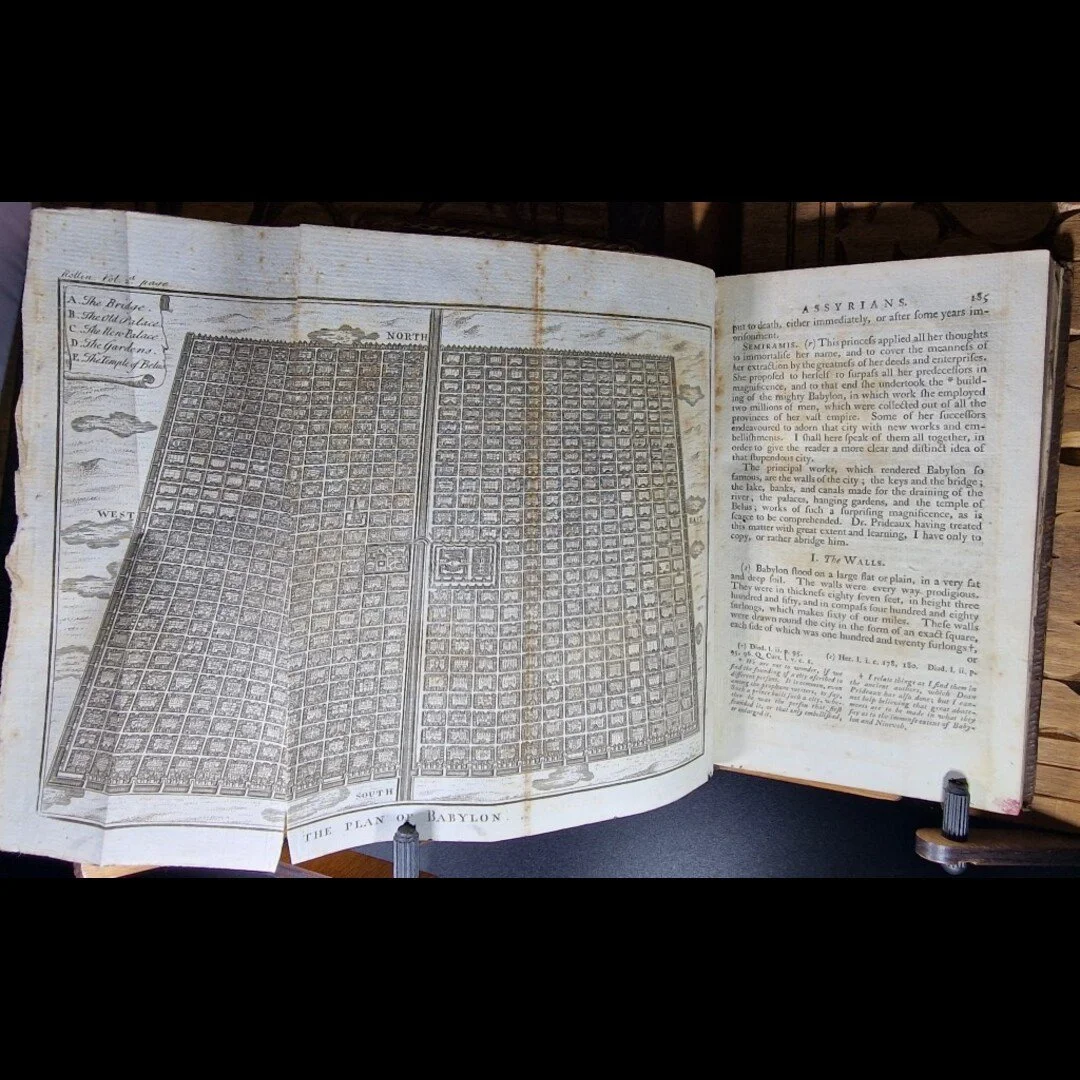 Rollin Vol. 2d page
A. The Bridge
B. The Old Palace
C. The New Palace
D. The Gardens.
E. The Temple of Belus
NORTH
WEST
EAST
SOUTH
THE PLAN OF BABYLON.
ASSYRIANS. 185
put to death, either immediately, or after some years im-
prisonment.
SEMIRAMIS. (r) This princeſs applied all her thoughts
to immortaliſe her name, and to cover the meanneſs of
her extraction by the greatneſs of her deeds and enterpriſes.
She propoſed to herſelf to ſurpaſs all her predeceſſors in
magnificence, and to that end ſhe undertook the * build-
ing of the mighty Babylon, in which work ſhe employed
two millions of men, which were collected out of all the
provinces of her vaſt empire. Some of her ſucceſſors
endeavoured to adorn that city with new works and em-
belliſhments. I ſhall here ſpeak of them all together, in
order to give the reader a more clear and diſtinct idea of
that ſtupendous city.
The principal works, which rendered Babylon ſo
famous, are the walls of the city; the keys and the bridge;
the lake, banks, and canals made for the draining of the
river; the palaces, hanging gardens, and the temple of
Belus; works of ſuch a ſurpriſing magnificence, as is
ſcarce to be comprehended. Dr. Prideaux having treated
this matter with great extent and learning, I have only to
copy, or rather abridge him.
I. The WALLS.
(s) Babylon ſtood on a large flat or plain, in a very fat
and deep ſoil. The walls were every way prodigious.
They were in thickneſs eighty ſeven feet, in height three
hundred and fifty, and in compaſs four hundred and eighty
furlongs, which makes ſixty of our miles. Theſe walls
were drawn round the city in the form of an exact ſquare,
each ſide of which was one hundred and twenty furlongs†,
or
(r) Diod. l. ii. p. 95. (s) Her. l. i. c. 178, 180. Diod. l. ii. p.
95, 96. Q. Curt. l. v. c. 1.
* We are not to wonder, if we
find the founding of a city aſcribed to
different perſons. It is common, even
among the prophane writers, to ſay,
Such a prince built ſuch a city, whe-
ther he were the perſon that firſt
founded it, or that only embelliſhed,
or enlarged it.
† I relate things as I find them in
the ancient authors, which Dean
Prideaux has alſo done; but I can-
not help believing that great abate-
ments are to be made in what they
ſay as to the immenſe extent of Baby-
lon and Nineveh.